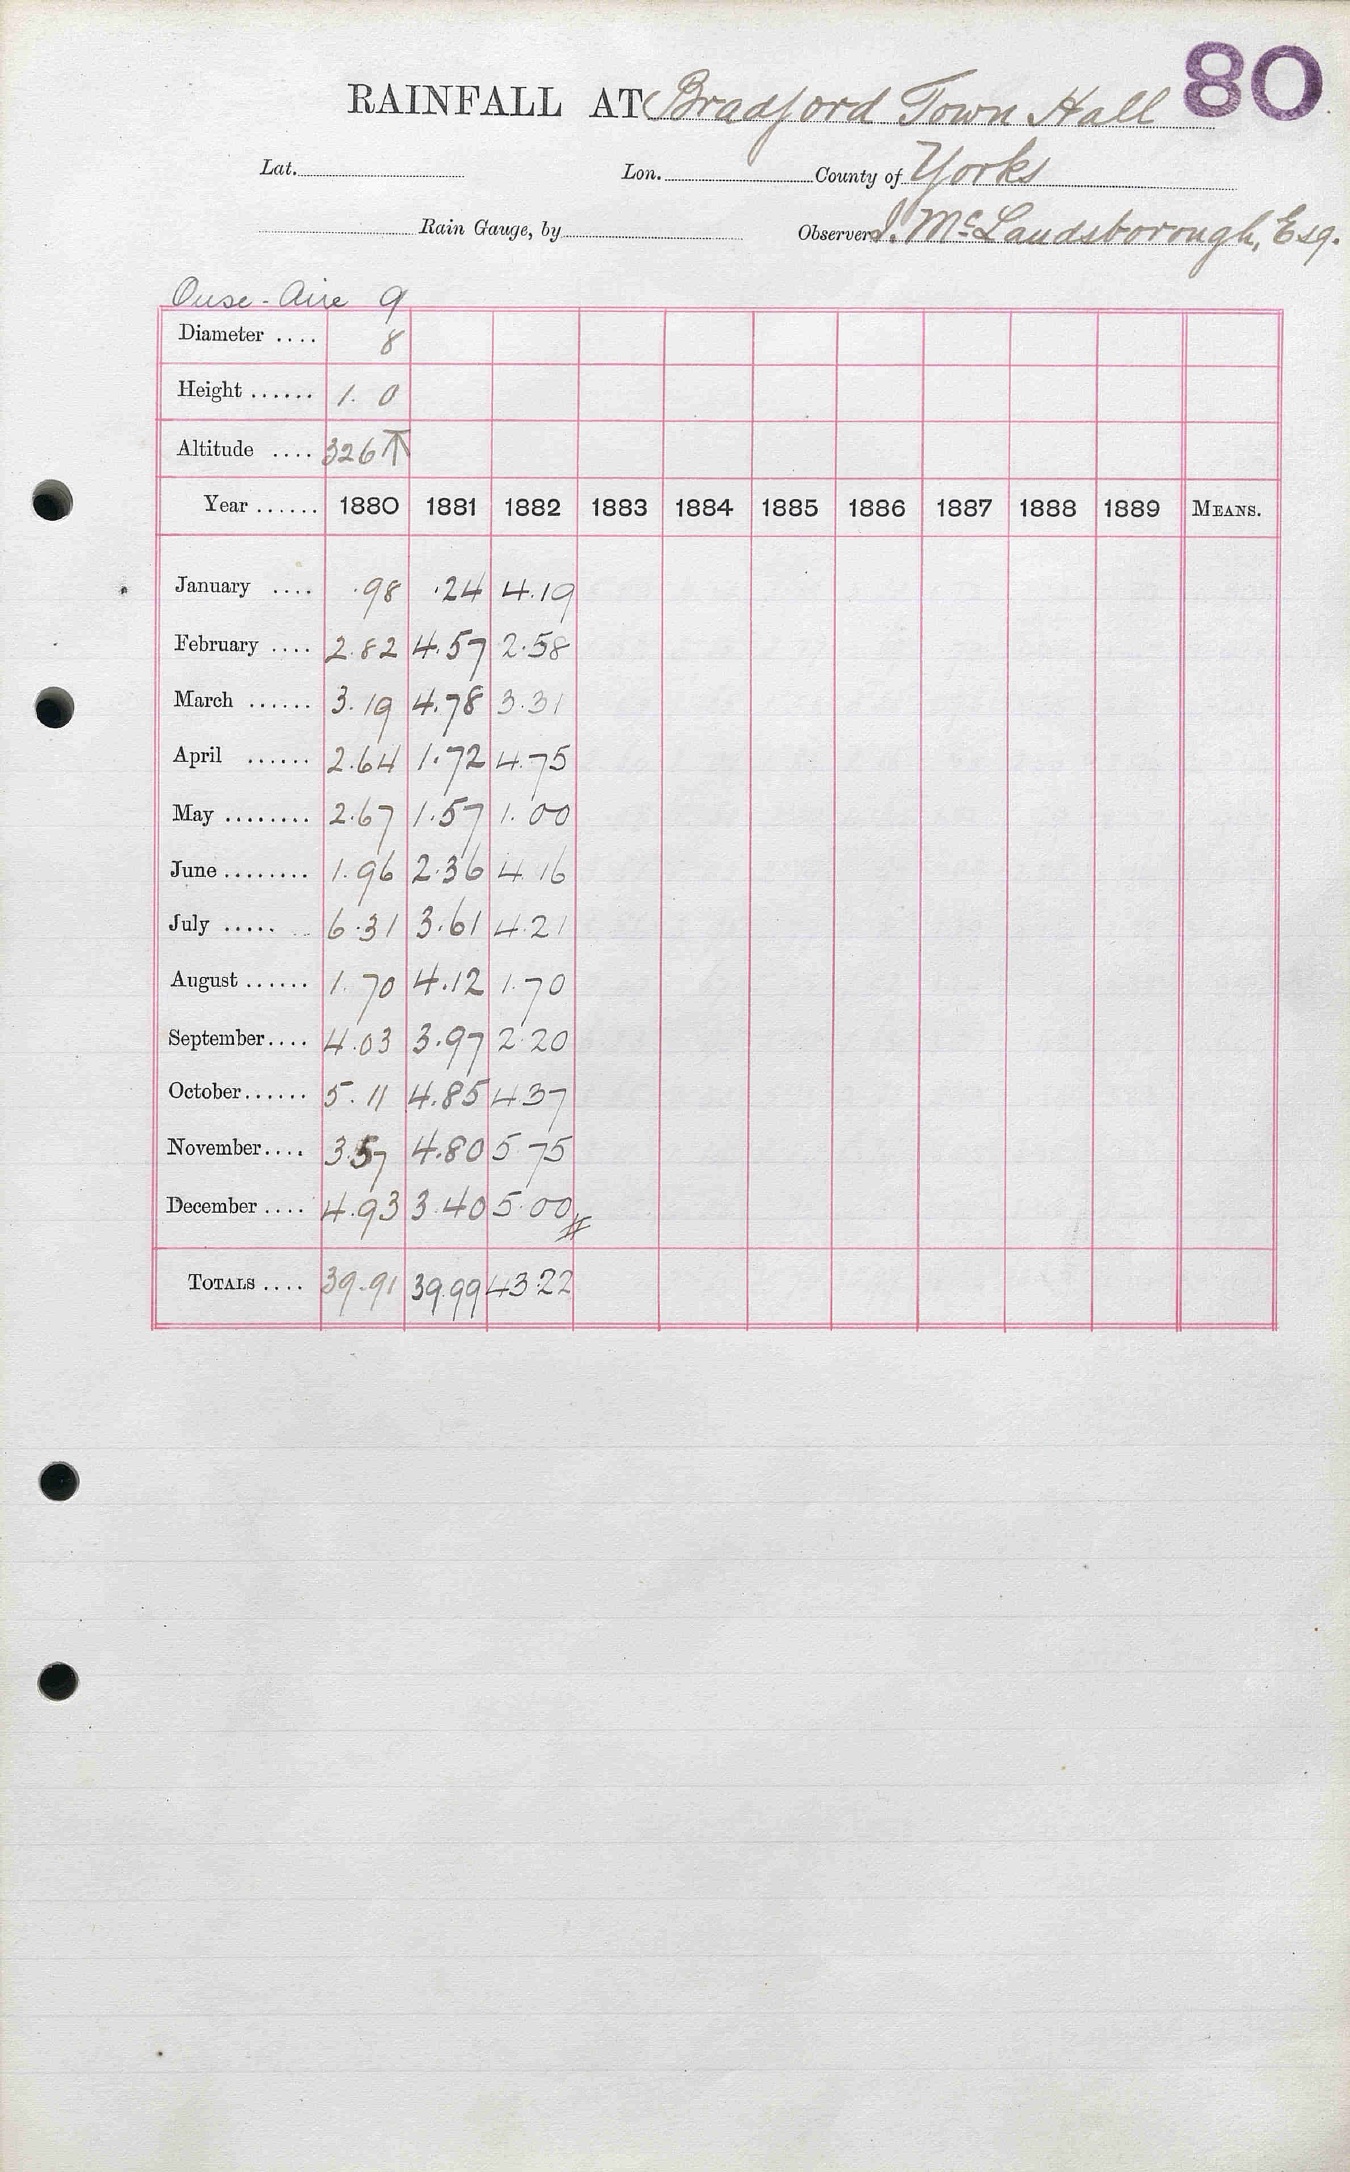 80
RAINFALL AT Bradford Town Hall
Lat. Lon. County of Yorks
Rain Gauge, by Observer J. McLandsborough, Esq.
Ouse-Aire 9
Diameter .... 8
Height ...... 1. 0
Altitude .... 326 T
Year ...... 1880 1881 1882 1883 1884 1885 1886 1887 1888 1889 MEANS.
January .... .98 .24 4.19
February .... 2.82 4.57 2.58
March ...... 3.19 4.78 3.31
April ...... 2.64 1.72 4.75
May ........ 2.67 1.57 1.00
June ........ 1.96 2.36 4.16
July ..... 6.31 3.61 4.21
August ...... 1.70 4.12 1.70
September .... 4.03 3.97 2.20
October ...... 5.11 4.85 4.37
November .... 3.57 4.80 5.75
December .... 4.93 3.40 5.00 #
TOTALS .... 39.91 39.99 43.22